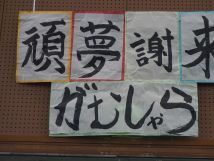 頑夢謝来
がむしゃら